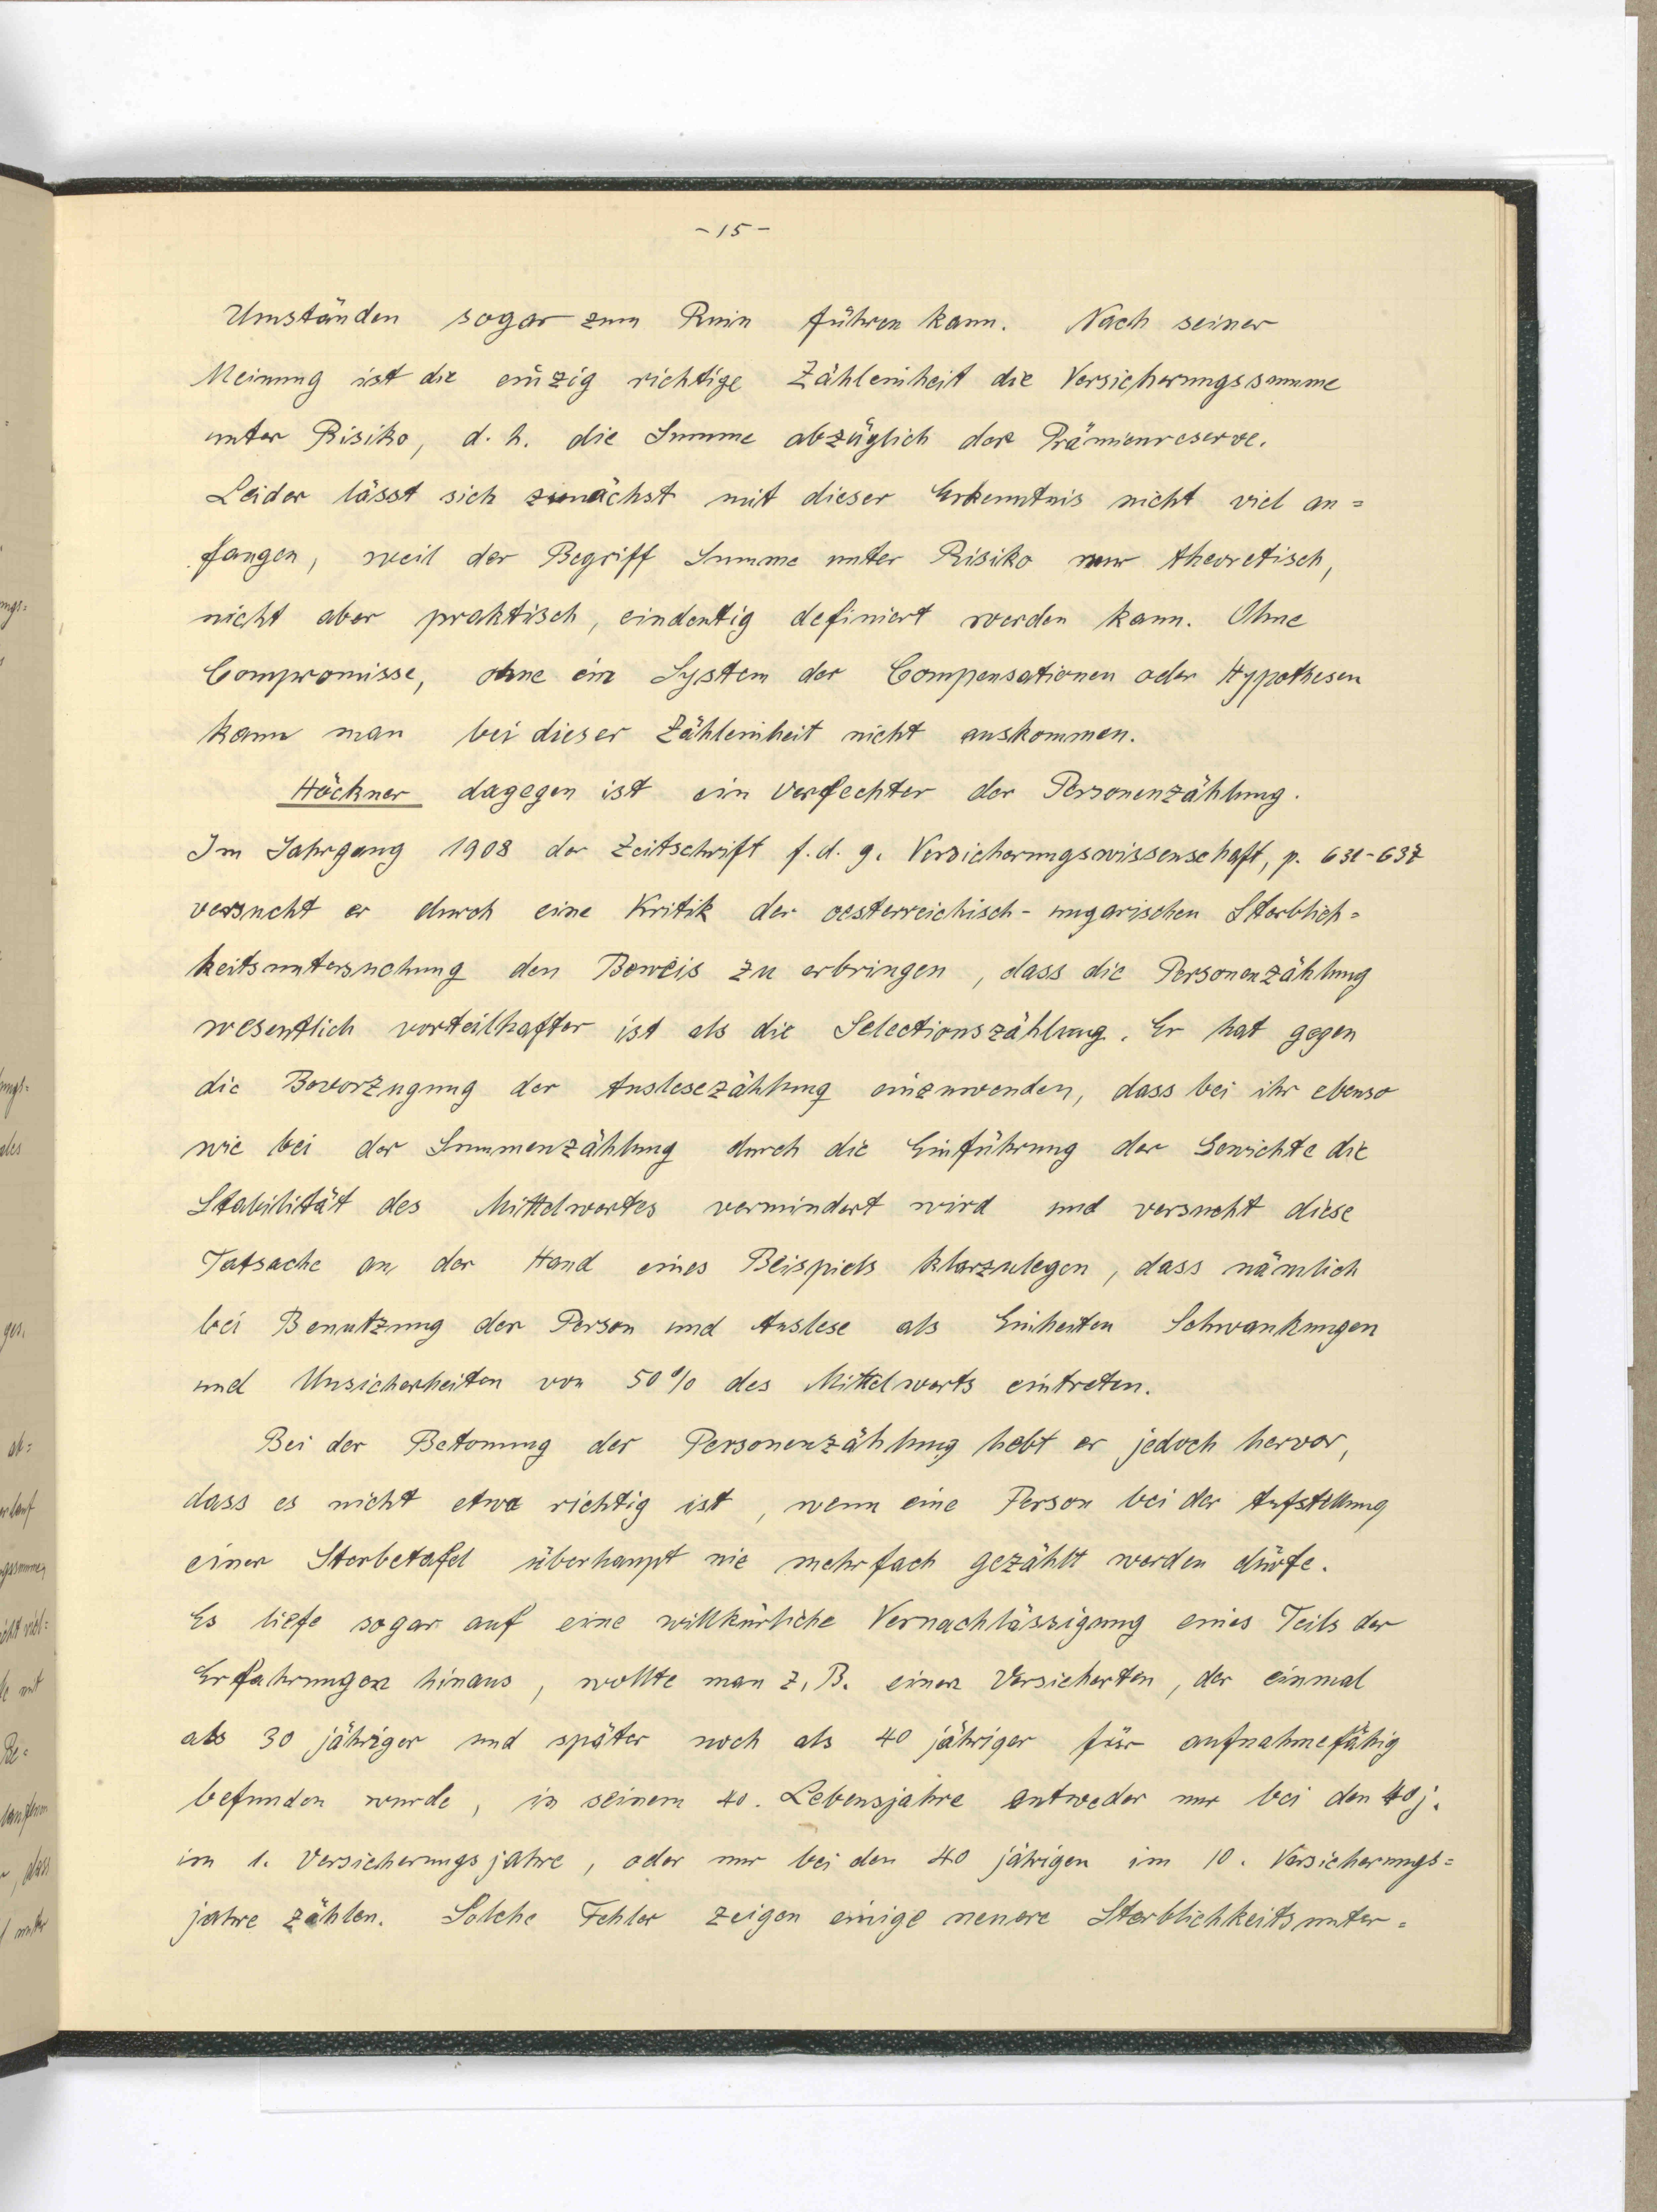 -15-
Umständen sogar zum Ruin führen kann. Nach seiner
Meinung ist die einzig richtige Zähleinheit die Versicherungssumme
unter Risiko, d. h. die Summe abzüglich der Prämienreserve.
Leider lässt sich zunächst mit dieser Erkenntnis nicht viel an=
fangen, weil der Begriff Summe unter Risiko nur theoretisch,
nicht aber praktisch, eindeutig definiert werden kann. Ohne
Compromisse, ohne ein System der Compensationen oder Hypothesen
kann man bei dieser Zähleinheit nicht auskommen.
Höckner dagegen ist ein Verfechter der Personenzählung.
Im Jahrgang 1908 der Zeitschrift f. d. g. Versicherungswissenschaft, p.
versucht er durch eine Kritik der oesterreichisch-ungarischen Sterblich=
keitsuntersuchung den Beweis zu erbringen, dass die Personenzählung
wesentlich vorteilhafter ist als die Selectionszählung. Er hat gegen
die Bevorzugung der Auslesezählung einzuwenden, dass bei ihr ebenso
wie bei der Summenzählung durch die Einführung der Gewichte die
Stabilität des Mittelwertes vermindert wird und versucht diese
Tatsache an der Hand eines Beispiels klarzulegen, dass nämlich
bei Benutzung der Person und Auslese als Einheiten Schwankungen
und Unsicherheiten von 50% des Mittelwerts eintreten.
Bei der Betonung der Personenzählung hebt er jedoch hervor,
dass es nicht etwa richtig ist, wenn eine Person bei der Aufstellung
einer Sterbetafel überhaupt nie mehrfach gezählt werden dürfe.
Es liefe sogar auf eine willkürliche Vernachlässigung eines Teils der
Erfahrungen hinaus, wollte man z. B. einen Versicherten, der einmal
als 30 jähriger und später noch als 40 jähriger für aufnahmefähig
befunden wurde, in seinem 40. Lebensjahre entweder nur bei den 40 j.
im 1. Versicherungsjahre, oder nur bei den 40 jährigen im 10. Versicherungs=
jahre zählen. Solche Fehler zeigen einige neuere Sterblichkeitsunter=